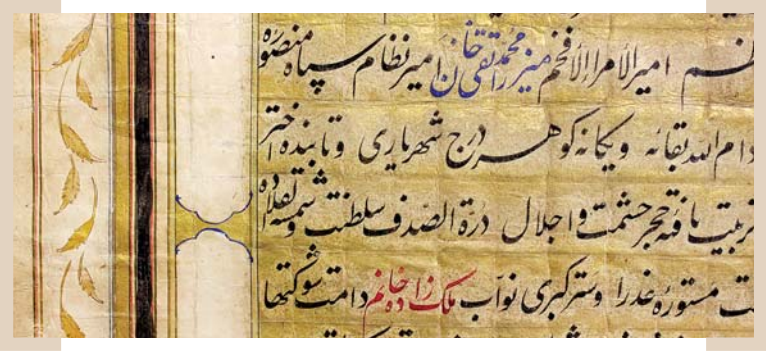 امیرالأمراء الأفخم میرزا محمد تقی خان امیر نظام سپاه منصوره
دام الله بقائه و یکانه کوهر درج شهریاری و تابنده اختر
تربیت یافته حجر حشمت و اجلال درة الصدف سلطنت و شمسه
مستوره عذرا و ستر کبری نواب ملک زاده خانم دامت شوکتها